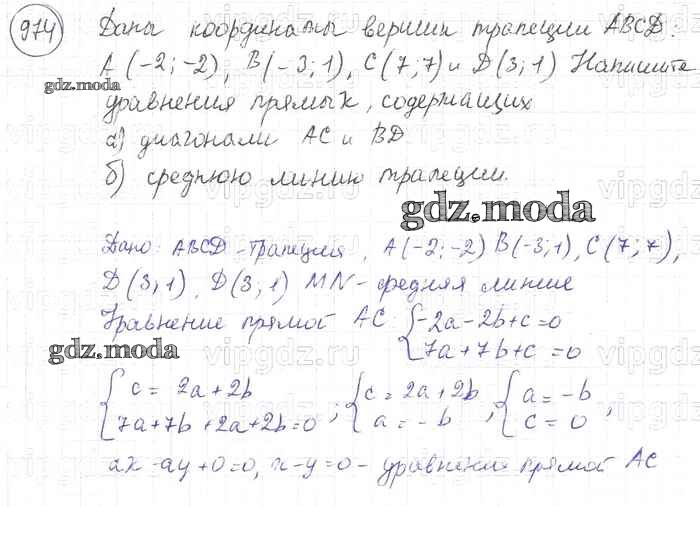 974 Даны координаты вершин трапеции ABCD:
A(-2;-2), B(-3;1), C(7;7) и D(3;1) Напишите
gdz.moda
уравнения прямых, содержащих
а) диагонали AC и BD
б) среднюю линию трапеции.
vipgdz.ru
gdz.moda
Дано: ABCD-трапеция, A(-2;-2) B(-3;1), C(7;7),
D(3;1), D(3;1) MN-средняя линия
Уравнение прямой AC: { -2a-2b+c=0
gdz.moda
7a+7b+c=0
{ c = 2a+2b ; { c = 2a+2b ; { a = -b
7a+7b+2a+2b=0 a = -b c = 0 ,
ax-ay+0=0, x-y=0 - уравнение прямой AC